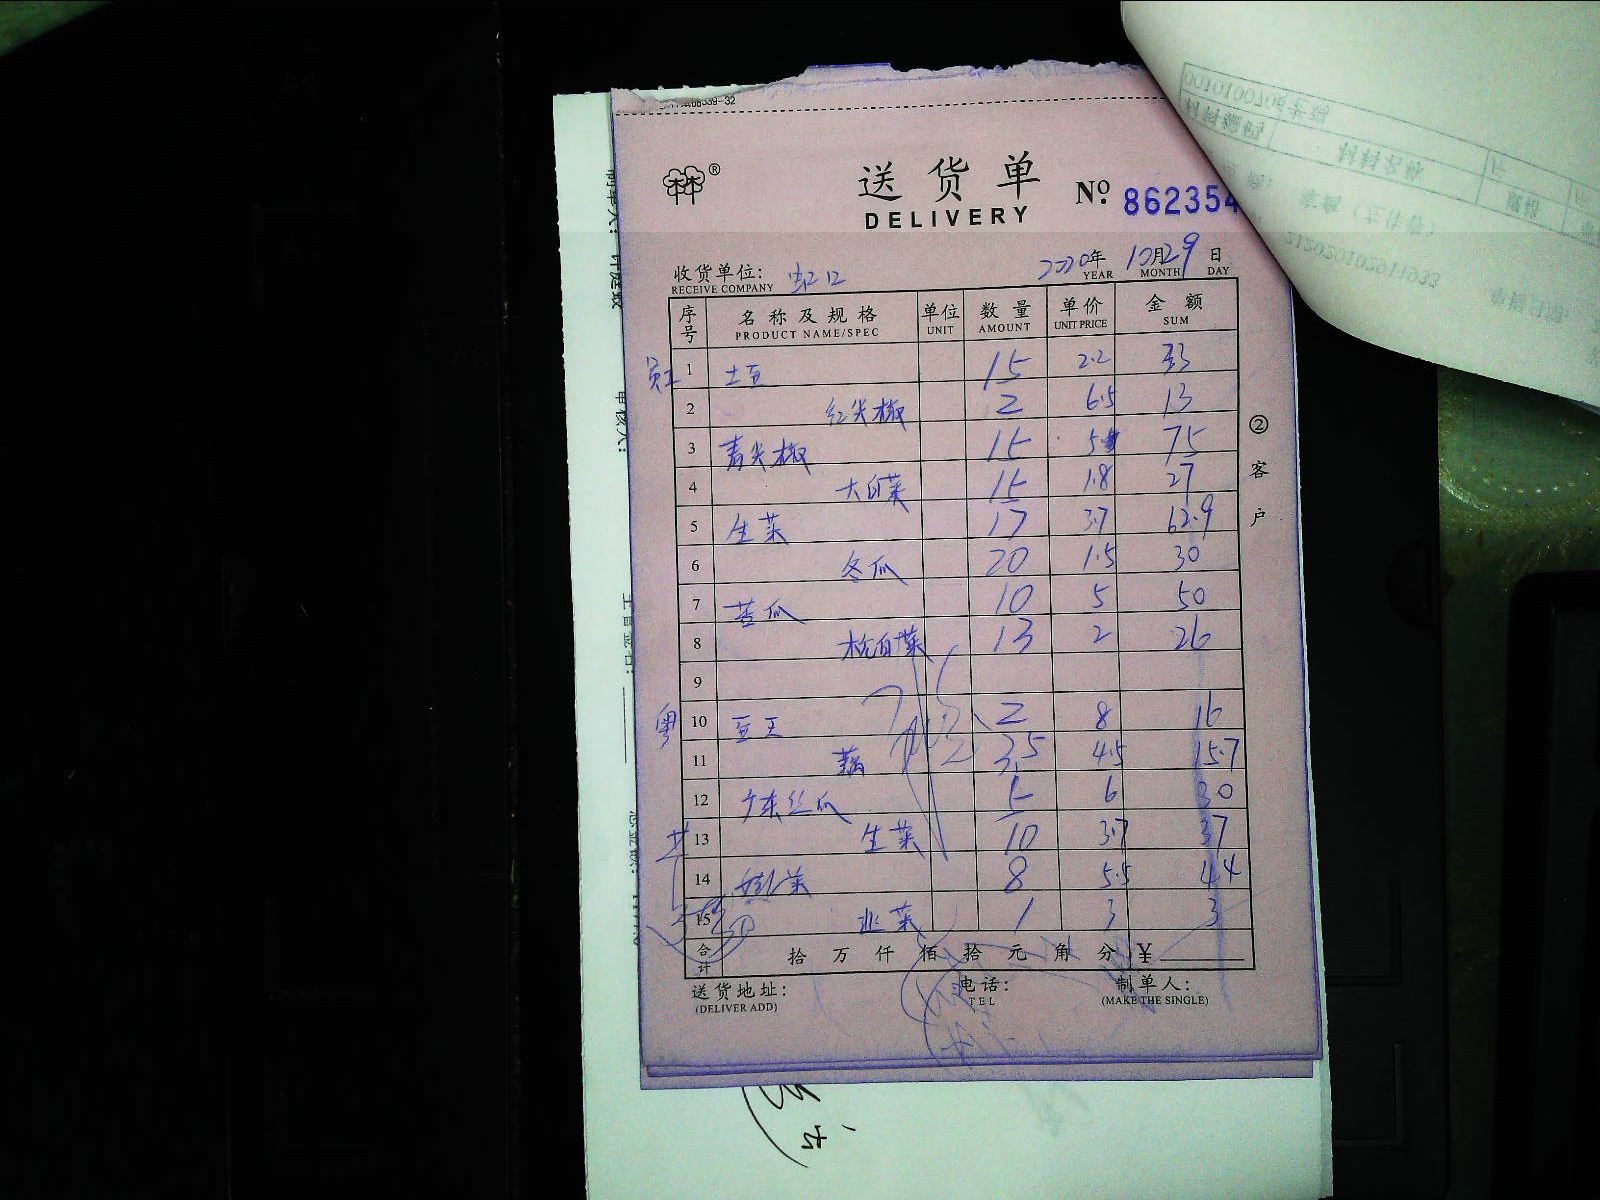 送货单
DELIVERY
No. 862354
2020年 10月29日
YEAR MONTH DAY
收货单位: 虹口
RECEIVE COMPANY
序号 名称及规格 单位 数量 单价 金额
PRODUCT NAME/SPEC UNIT AMOUNT UNIT PRICE SUM
员工 1 土豆 15 2.2 33
2 红尖椒 2 6.5 13
3 青尖椒 15 5 75
4 大白菜 15 1.8 27
5 生菜 17 3.7 62.9
6 冬瓜 20 1.5 30
7 苦瓜 10 5 50
8 杭白菜 13 2 26
9
粤 10 豆王 2 8 16
11 藕 3.5 4.5 15.7
12 广东丝瓜 5 6 30
13 生菜 10 3.7 37
14 菜 8 5.5 44
15 韭菜 1 3 3
合计 拾 万 仟 佰 拾 元 角 分 ¥
送货地址: 电话: 制单人:
(DELIVER ADD) TEL (MAKE THE SINGLE)
② 客户